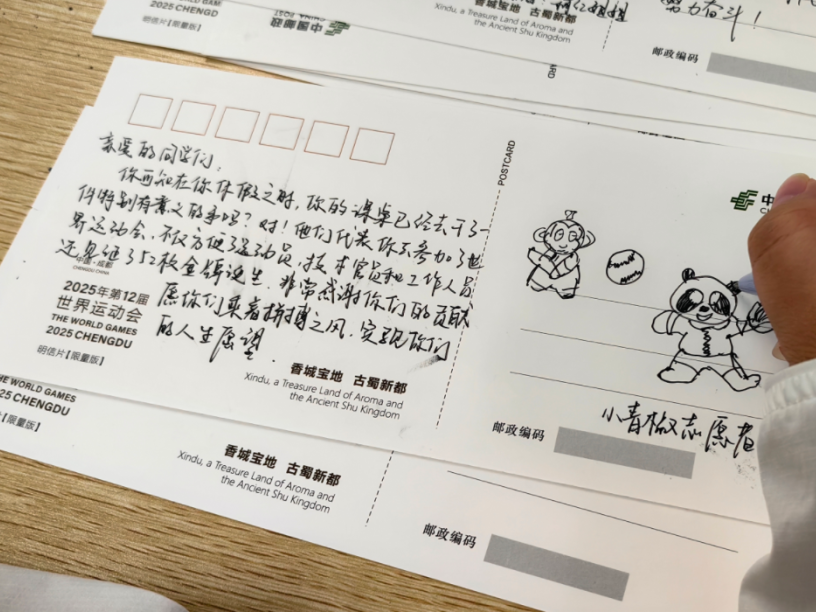 2025 CHENGD
明信片【限量版】
中国邮政
香城宝地 古蜀新都
Xindu, a Treasure Land of Aroma and
the Ancient Shu Kingdom
姐姐
努力奋斗!
邮政编码
POSTCARD
亲爱的同学们,
你可知在你休假之时,你的课桌已经去干了一
件特别有意义的事吗?对!他们代表你参加了世
界运动会,不仅方便了运动员,技术官员和工作人员
还见证了52枚金牌诞生.非常感谢你们的贡献
愿你们乘着拼搏之风,实现你们
的人生愿望.
中国·成都
CHENGDU CHINA
2025年第12届
世界运动会
THE WORLD GAMES
2025 CHENGDU
明信片【限量版】
香城宝地 古蜀新都
Xindu, a Treasure Land of Aroma and
the Ancient Shu Kingdom
中
小青椒志愿者
邮政编码
THE WORLD GAMES
2025 CHENGDU
明信片【限量版】
香城宝地 古蜀新都
Xindu, a Treasure Land of Aroma and
the Ancient Shu Kingdom
邮政编码